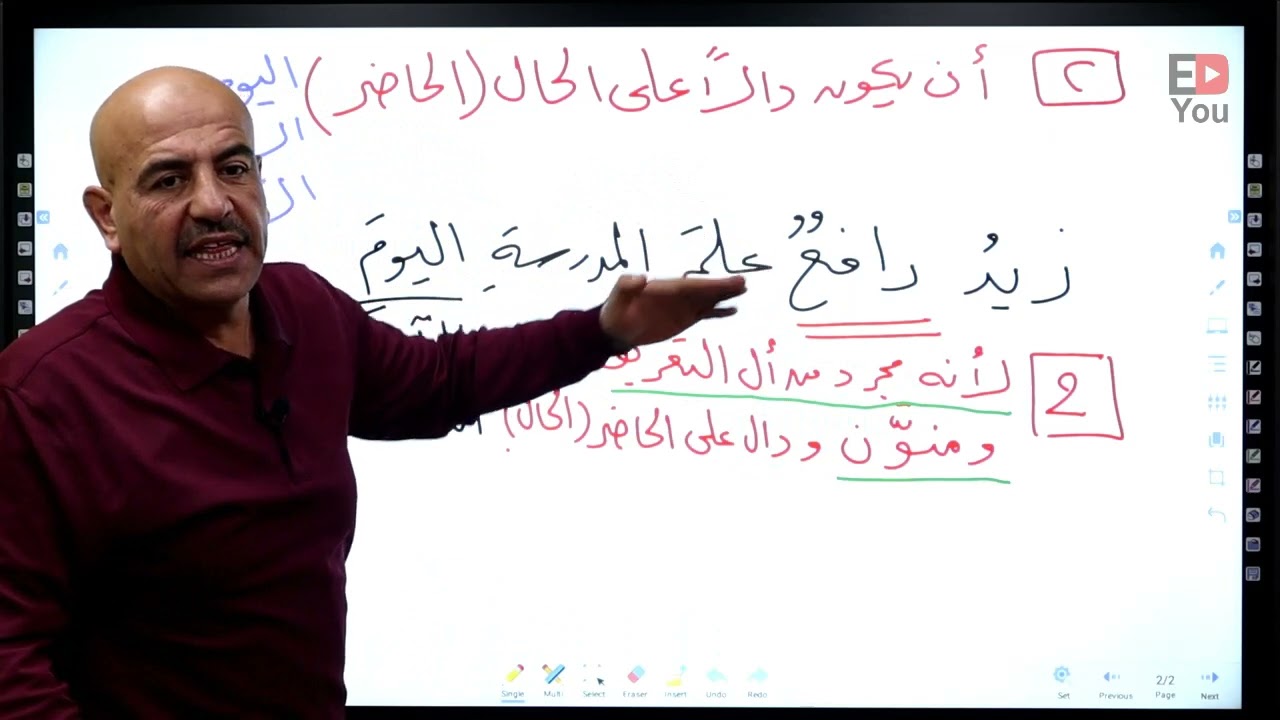 ED
You
٢ أن يكون دالاً على الحال (الحاضر) اليوم
زيدٌ رافعٌ علمَ المدرسةِ اليومَ
2 لأنه مجرد من أل التعريف
ومنوّن ودال على الحاضر (الحال)
Single Multi Select Eraser Insert Undo Redo Set Previous 2/2 Page Next